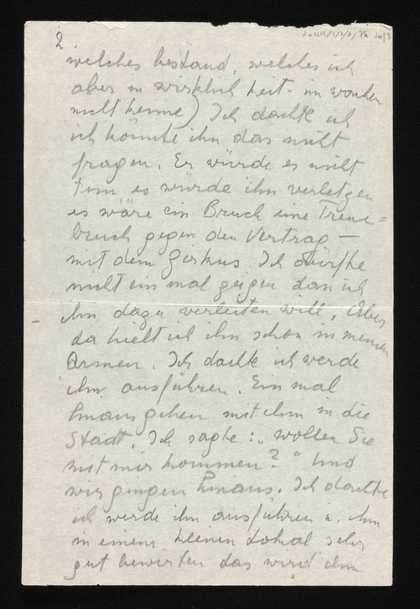 2.
welches bestand, welches ich
aber in wirklich keit im wachen
nicht kenne) Ich dachte ich
ich könnte ihn das nicht
fragen. Er würde es nicht
tun es würde ihn verletzen
es wäre ein Bruch eine Treue=
bruch gegen den Vertrag —
mit dem Zirkus. Ich dürfte
nicht ein mal zeigen dass ich
ihn dazu verleiten will. Aber
da hielt ich ihn schon in meinen
Armen. Ich dachte ich werde
ihn ausführen. Ein mal
hinausgehen mit ihm in die
Stadt. Ich sagte: "wollen Sie
mit mir kommen?" Und
wir gingen hinaus. Ich dachte
ich werde ihn ausführen u. ihn
in einem kleinen Lokal sehr
gut bewirten das wird ihm